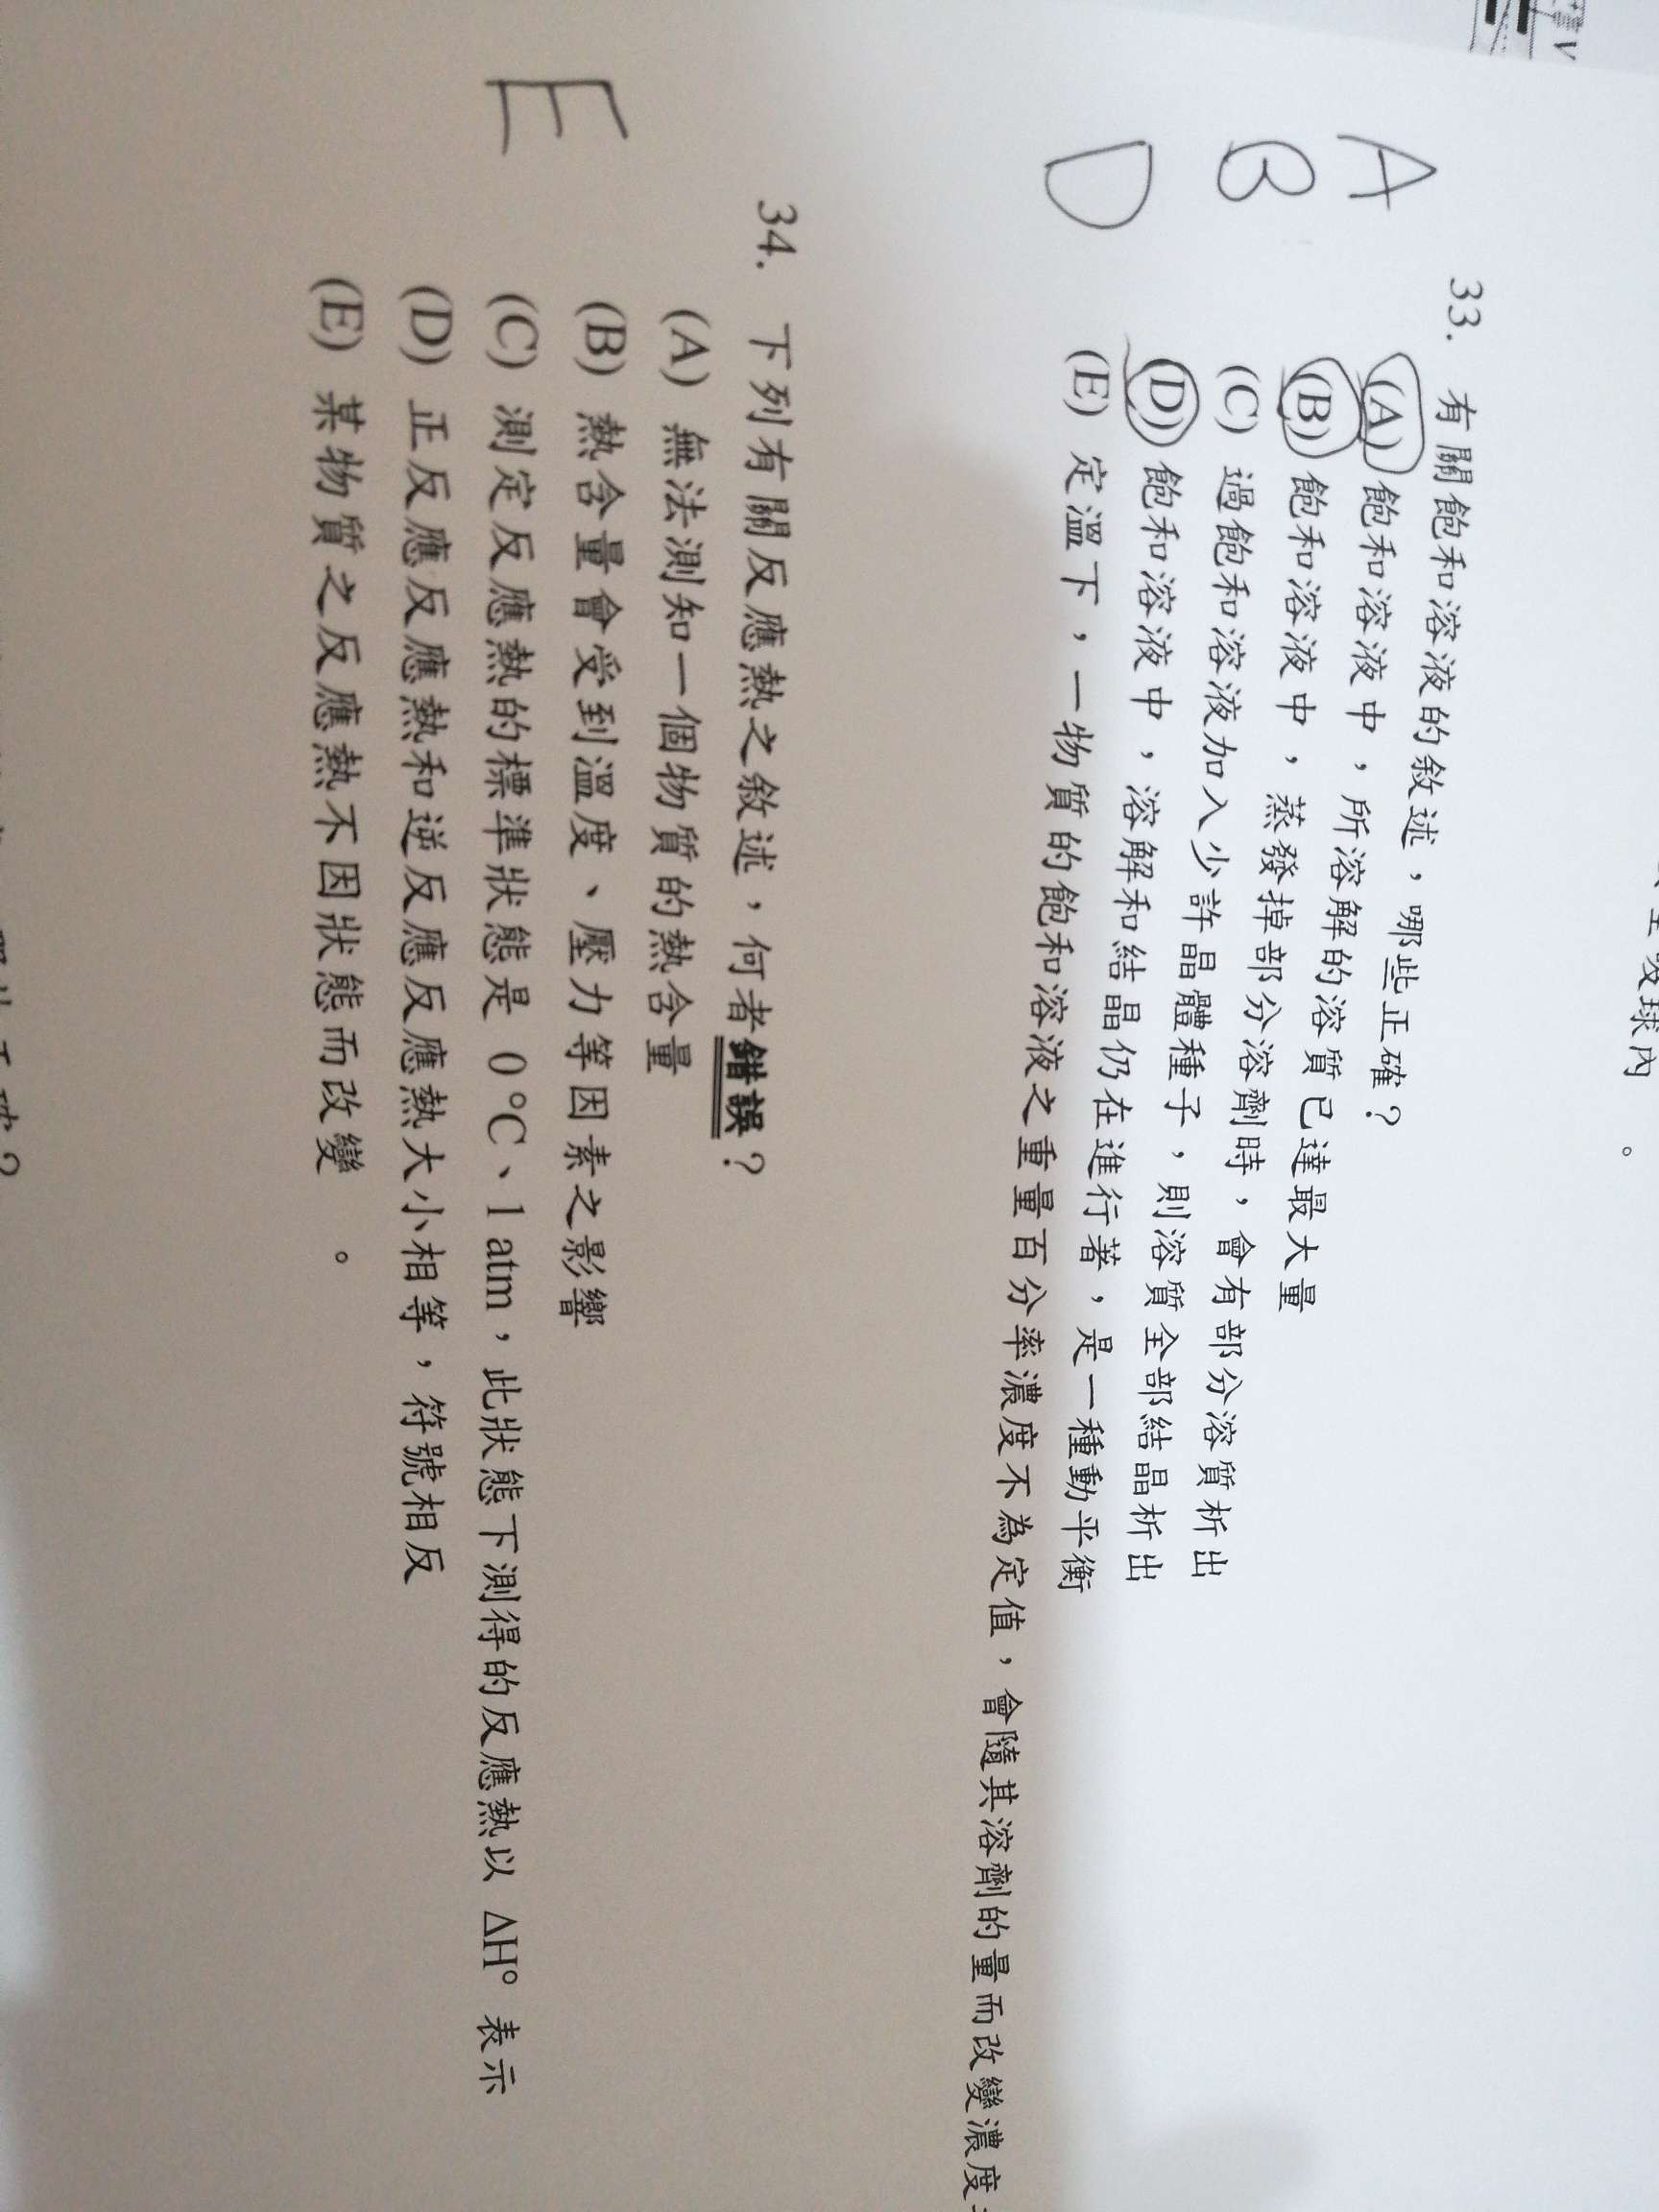 球內。
A
B
D
33. 有關飽和溶液的敘述，哪些正確？
(A) 飽和溶液中，所溶解的溶質已達最大量
(B) 飽和溶液中，蒸發掉部分溶劑時，會有部分溶質析出
(C) 過飽和溶液加入少許晶體種子，則溶質全部結晶析出
(D) 飽和溶液中，溶解和結晶仍在進行著，是一種動平衡
(E) 定溫下，一物質的飽和溶液之重量百分率濃度不為定值，會隨其溶劑的量而改變濃度
E
34. 下列有關反應熱之敘述，何者錯誤？
(A) 無法測知一個物質的熱含量
(B) 熱含量會受到溫度、壓力等因素之影響
(C) 測定反應熱的標準狀態是 0 °C、1 atm，此狀態下測得的反應熱以 ΔH° 表示
(D) 正反應反應熱和逆反應反應熱大小相等，符號相反
(E) 某物質之反應熱不因狀態而改變。